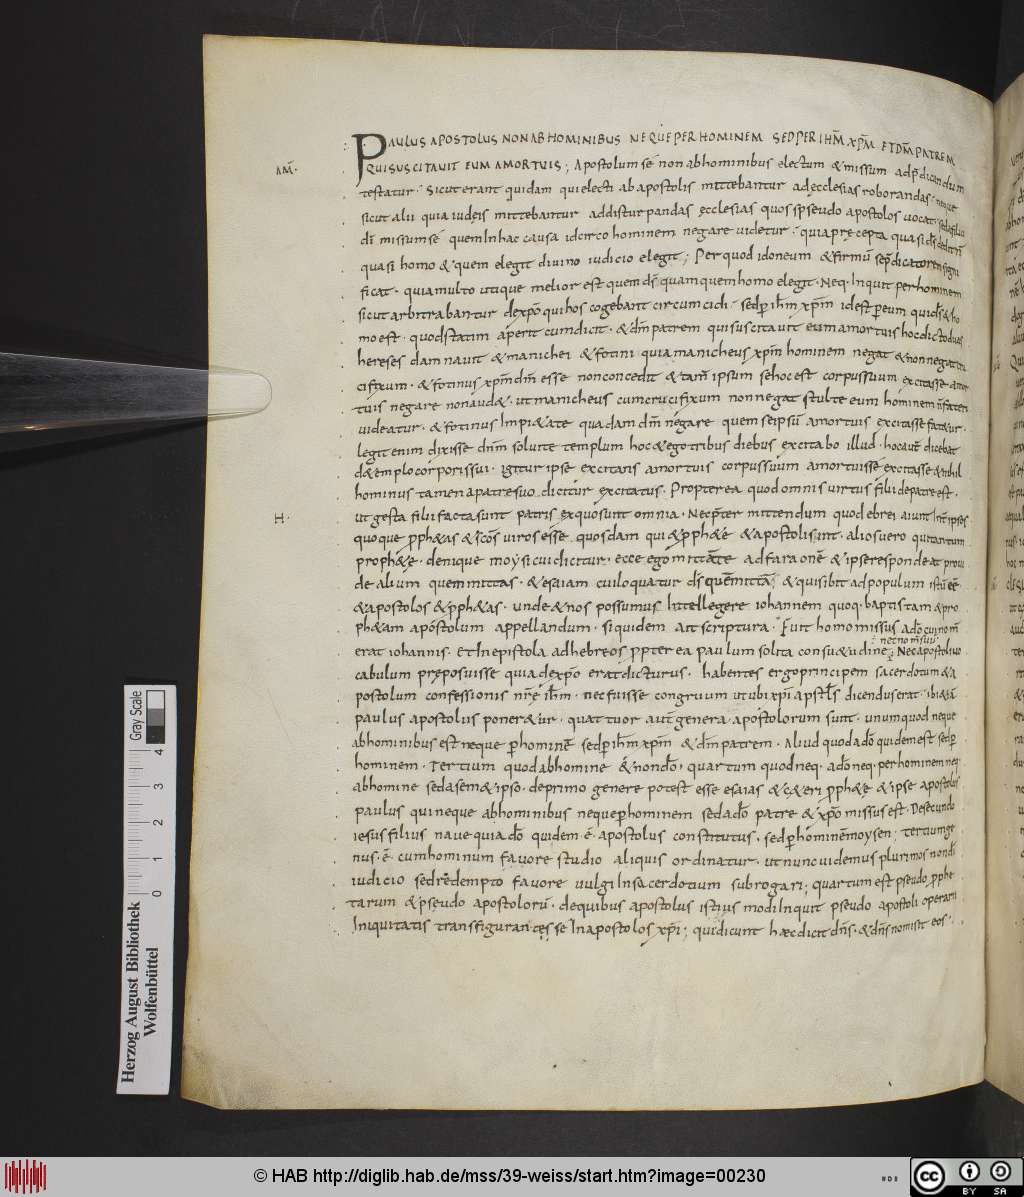 PAULUS APOSTOLUS NON AB HOMINIBUS NEQUE PER HOMINEM SED PER IHM̄ XP̄M ET DM̄ PATREM
AM̄·
QUI SUSCITAVIT EUM A MORTUIS; Apostolum se non ab hominibus electum & missum ad p̄dicandum
testatur· Sicut erant quidam qui electi ab apostolis mittebantur ad ecclesias roborandas· neque
sicut alii quia iudeis mittebantur ad disturpandas ęcclesias quos pseudo apostolos uocat· sed a filio
dī missum se quem In hac causa idcirco hominem negare uidetur· quia pręcepta quasi d̄s dedit n̄
quasi homo & quem elegit diuino iudicio elegit; Per quod idoneum & firmū se p̄dicatorem signi
ficat· quia multo utique melior est quem d̄s quam quem homo elegit· Neq· Inquit per hominem
sicut arbitrabantur de xp̄o qui hos cogebant circumcidi· sed p̄ ih̄m xp̄m id est p̄ eum qui d̄s & ho
mo est· quod statim aperit cum dicit· & dm̄ patrem qui suscitauit eum a mortuis hoc dicto duas
hereses damnauit & manichei & fotini quia manicheus xp̄m hominem negat & non negat cru
cifixum· & fotinus xp̄m dm̄ esse non concedit & tam̄ ipsum se hoc est corpus suum excitasse a mor
tuis negare non aud&· ut manicheus cum crucifixum non negat stulte eum hominem n̄ fateri
uideatur· & fotinus Impi& ate quadam dm̄ negare quem se ipsū a mortuis excitasse fat&ur·
legit enim dixisse dn̄m soluite templum hoc & ego tribus diebus excitabo illud· hoc aut̄ dicebat
d& emplo corporis sui· igitur ipse excitans a mortuis corpus suum a mortuis se excitasse & nihil
hominus tamen a patre suo dicitur excitatus· Propterea quod omnis uirtus filii de patre est·
H·
ut gesta filii facta sunt patris ex quo sunt omnia· Nec p̄ter mittendum quod ebrei aiunt In t̄ ipses
quoque pph&as & sc̄os uiros esse quosdam qui & pph&ę & apostoli sint· alios uero qui tantum
proph&ę· denique moysi cui dicitur· ecce ego mittā te ad faraonē & ipse respondeat proui
de alium quem mittas· & esaiam cui loquatur d̄s quēmittā; & quis ibit ad populum istū eē
& apostolos & pph&as· unde & nos possumus Intellegere iohannem quoq· baptistam & pro
ph&am apóstolum appellandum· siquidem ait scriptura· Fuit homo missus a dō cui nom̄
nec nom̄ suū
erat iohannis· Et In epistola ad hebreos p̄pterea paulum solita consu&udine; Nec apostoli uo
cabulum pręposuisse quia de xp̄o erat dicturus· habentes ergo principem sacerdotum & a
postolum confessionis nr̄ę ih̄m· nec fuisse congruum ut ubi xp̄i apst̄ls dicendus erat· ibi &iā
paulus apostolus poner&ur· quattuor aut̄ genera apóstolorum sunt· unum quod neque
ab hominibus est neque p̄ hominē sed p̄ ih̄m xp̄m & dm̄ patrem· Aliud quod a dō quidem est sed p̄
hominem· Tertium quod ab homine & non dō· quartum quod neq· a dō neq· per hominem neq
ab homine sed a sem&ipso· de primo genere potest esse esaias & c&eri pph&ę & ipse apostolus
paulus qui neque ab hominibus neque p̄ hominem sed a dō patre & xp̄o missus est· De secundo
iesus filius naue quia dō quidem ē apostolus constitutus· sed p̄ hominē moysen· tertium ge
nus· ē· cum hominum fauore studio aliquis ordinatur· ut nunc uidemus plurimos non dī
iudicio sed redempto fauore uulgi In sacerdotium subrogari; quartum est pseudo pphe
tarum & pseudo apostolorū· de quibus apostolus istius modi Inquit pseudo apostoli operarii
Iniquitatis transfigurantes se In apostolos xp̄i; qui dicunt hæc dicit dn̄s· & dn̄s non misit eos·
Gray Scale
4
3
2
1
0
Herzog August Bibliothek
Wolfenbüttel
© HAB http://diglib.hab.de/mss/39-weiss/start.htm?image=00230
cc BY SA